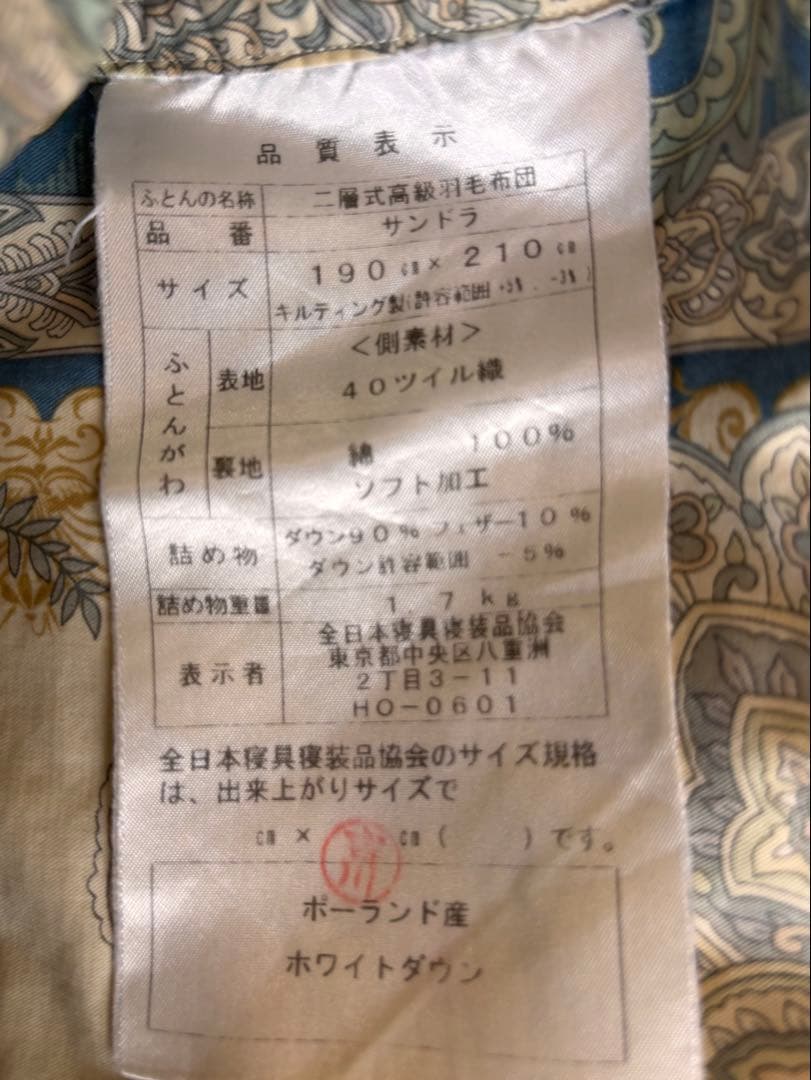 品質表示
ふとんの名称 二層式高級羽毛布団
品番 サンドラ
サイズ 190cm×210cm
キルティング製(許容範囲+5%、-3%)
ふとんがわ 表地 <側素材>
40ツイル織
裏地 綿 100%
ソフト加工
詰め物 ダウン90%フェザー10%
ダウン許容範囲 -5%
詰め物重量 1.7kg
表示者 全日本寝具寝装品協会
東京都中央区八重洲
2丁目3-11
HO-0601
全日本寝具寝装品協会のサイズ規格
は、出来上がりサイズで
cm× cm( )です。
ポーランド産
ホワイトダウン